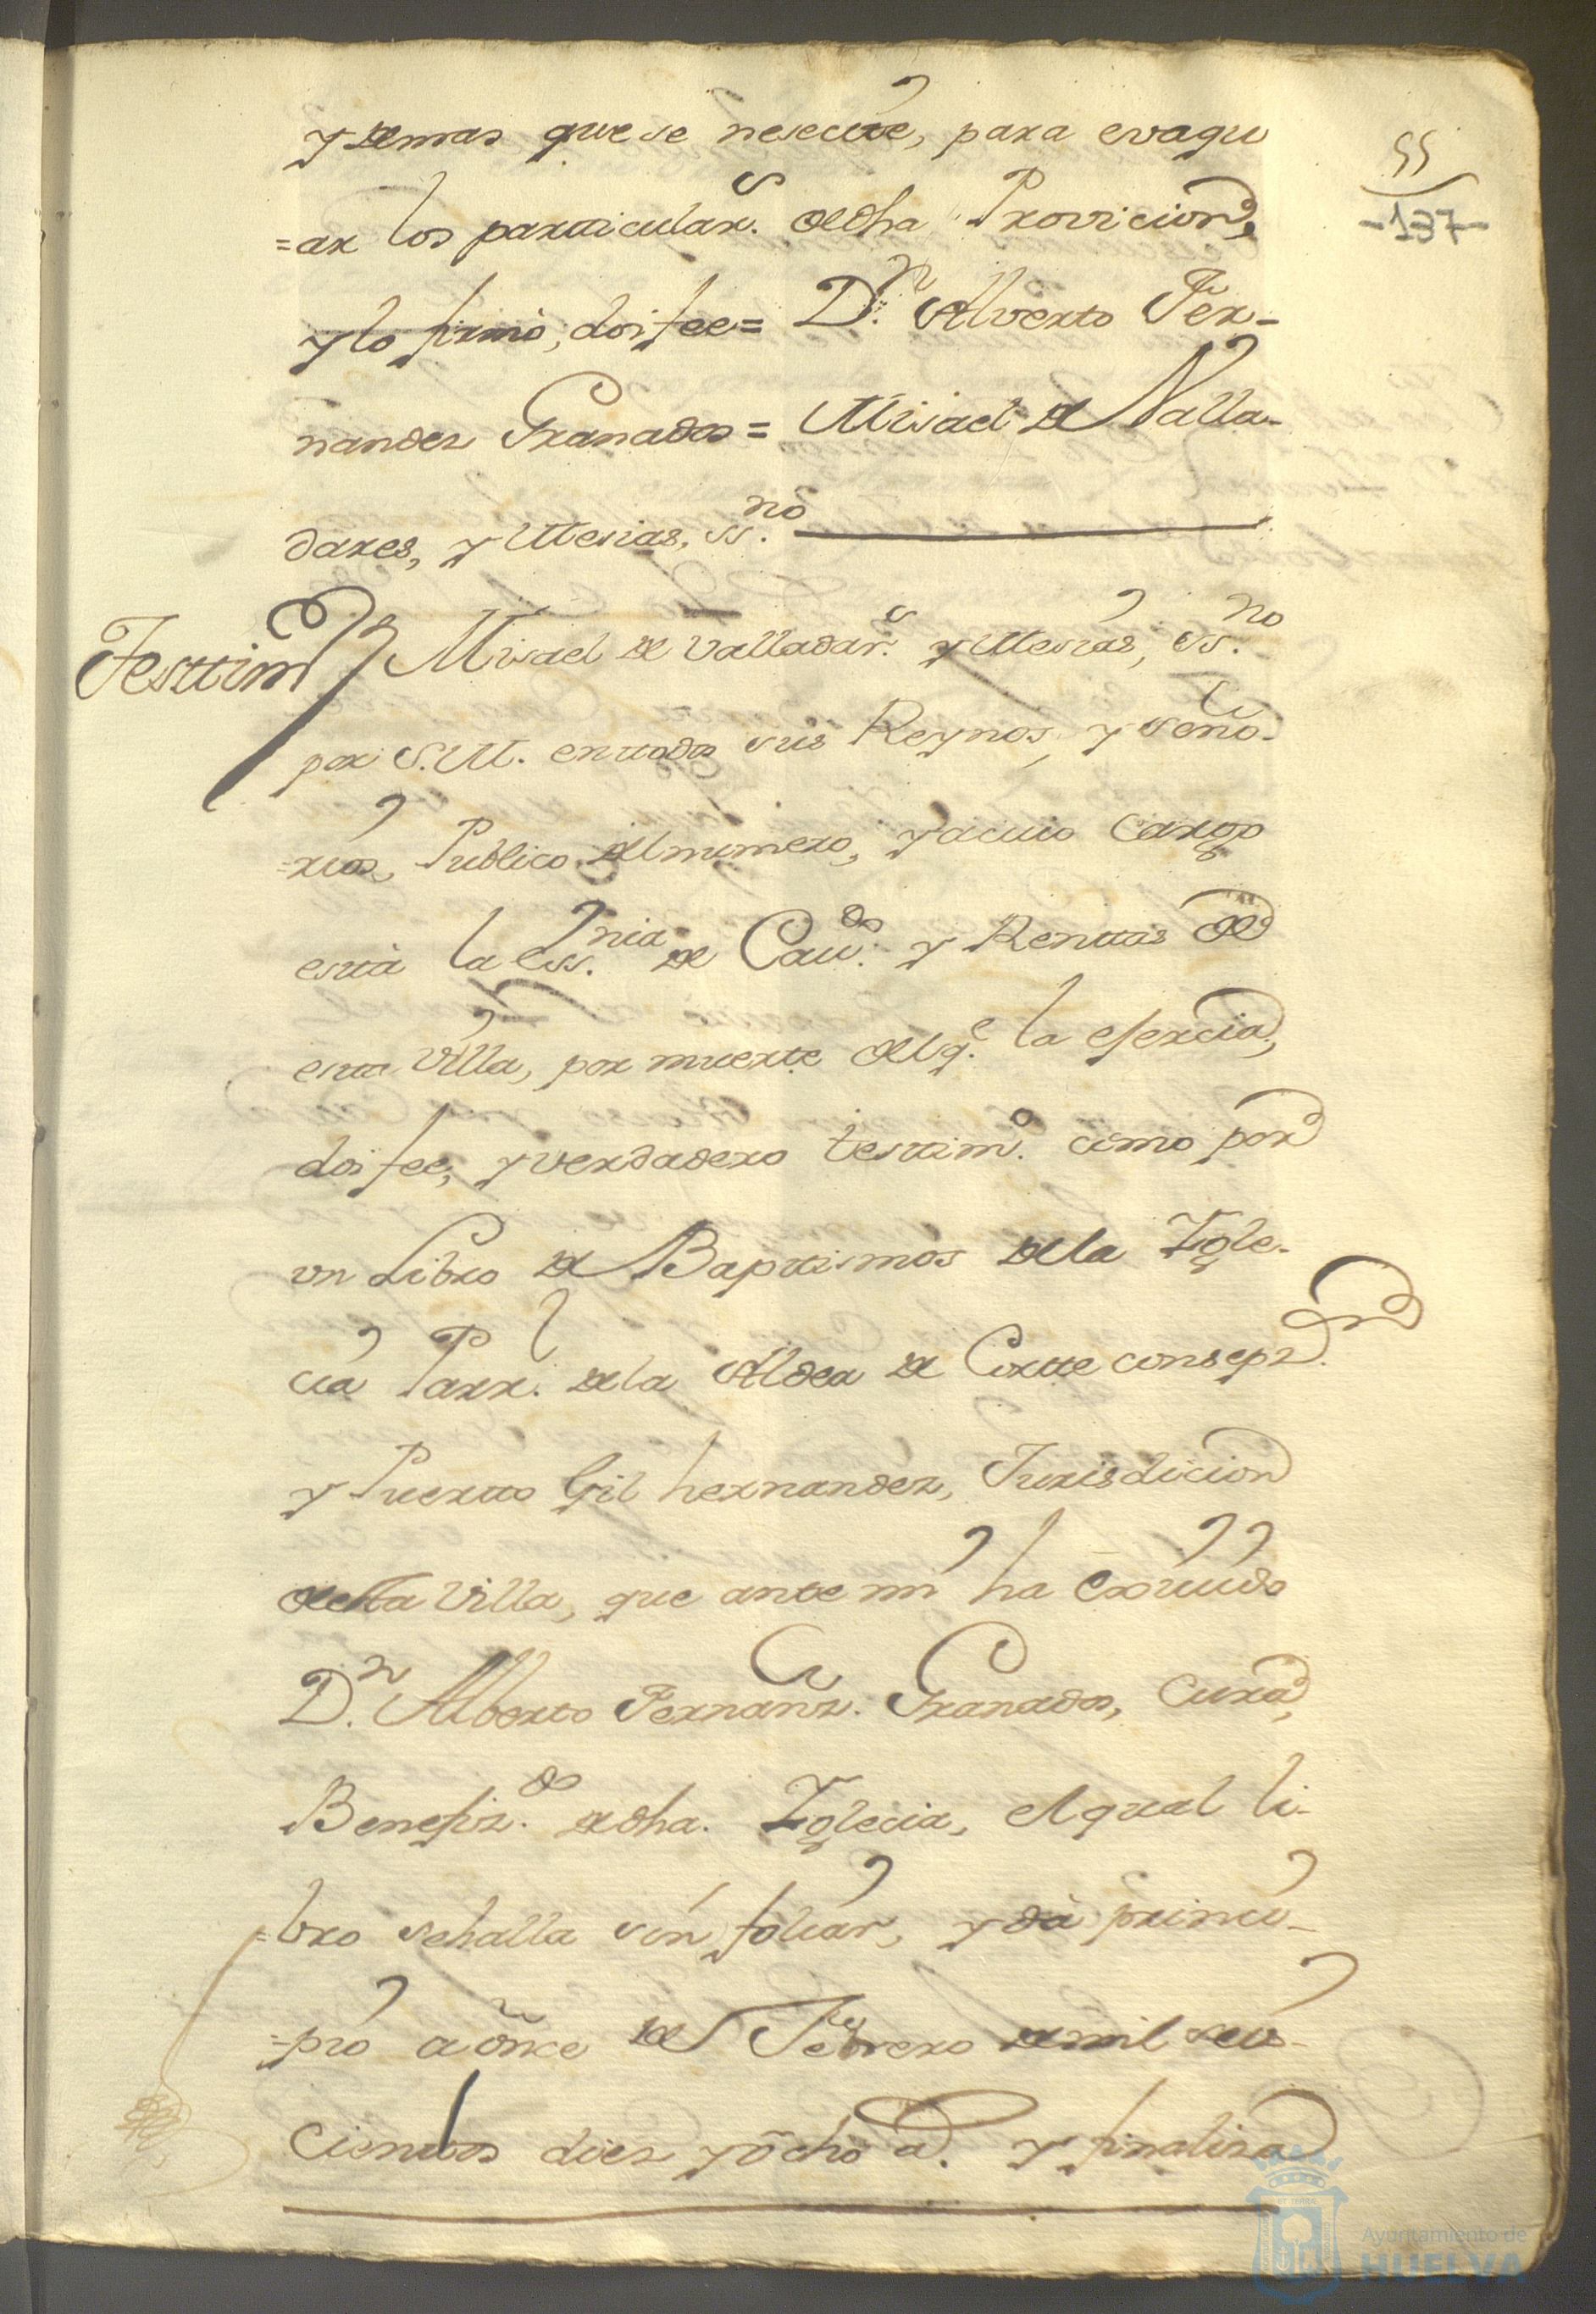 y demas que se nesecite, para evaqu
55
-137-
=ar los particular.s de dha Provicion,
y lo firmò, doi fee= D.n Alverto Fer-
nandez Granados= Misael de Valla-
dares, y Mesias, ss.no
Testtim
Misael de Valladar.s y Mesias, ss.no
por S.M. en ttodos sus Reynos, y seño-
=rios, Publico del numero, y a cuio Cargo
està la Ess.nia de Cav.do y Renttas de
esta Villa, por muerte del q.e la esercia,
doi fee, y verdadero testtim.o como por
vn Libro de Bapttismos de la Ygle-
cia Parr.l de la Aldea de Cortte consepz.on
y Puertto Gil hernandez, Jurisdicion
de esta Villa, que ante mi ha Exivido
D.n Alberto Fernanz. Granados, Cura,
Benefiz.do de dha. Yglecia, el qual li-
=bro se halla sin foliar, y dà princi-
=pio a once de Febrero de mil seis-
cientos diez y ocho a.s y finaliza
Ayuntamiento de
HUELVA